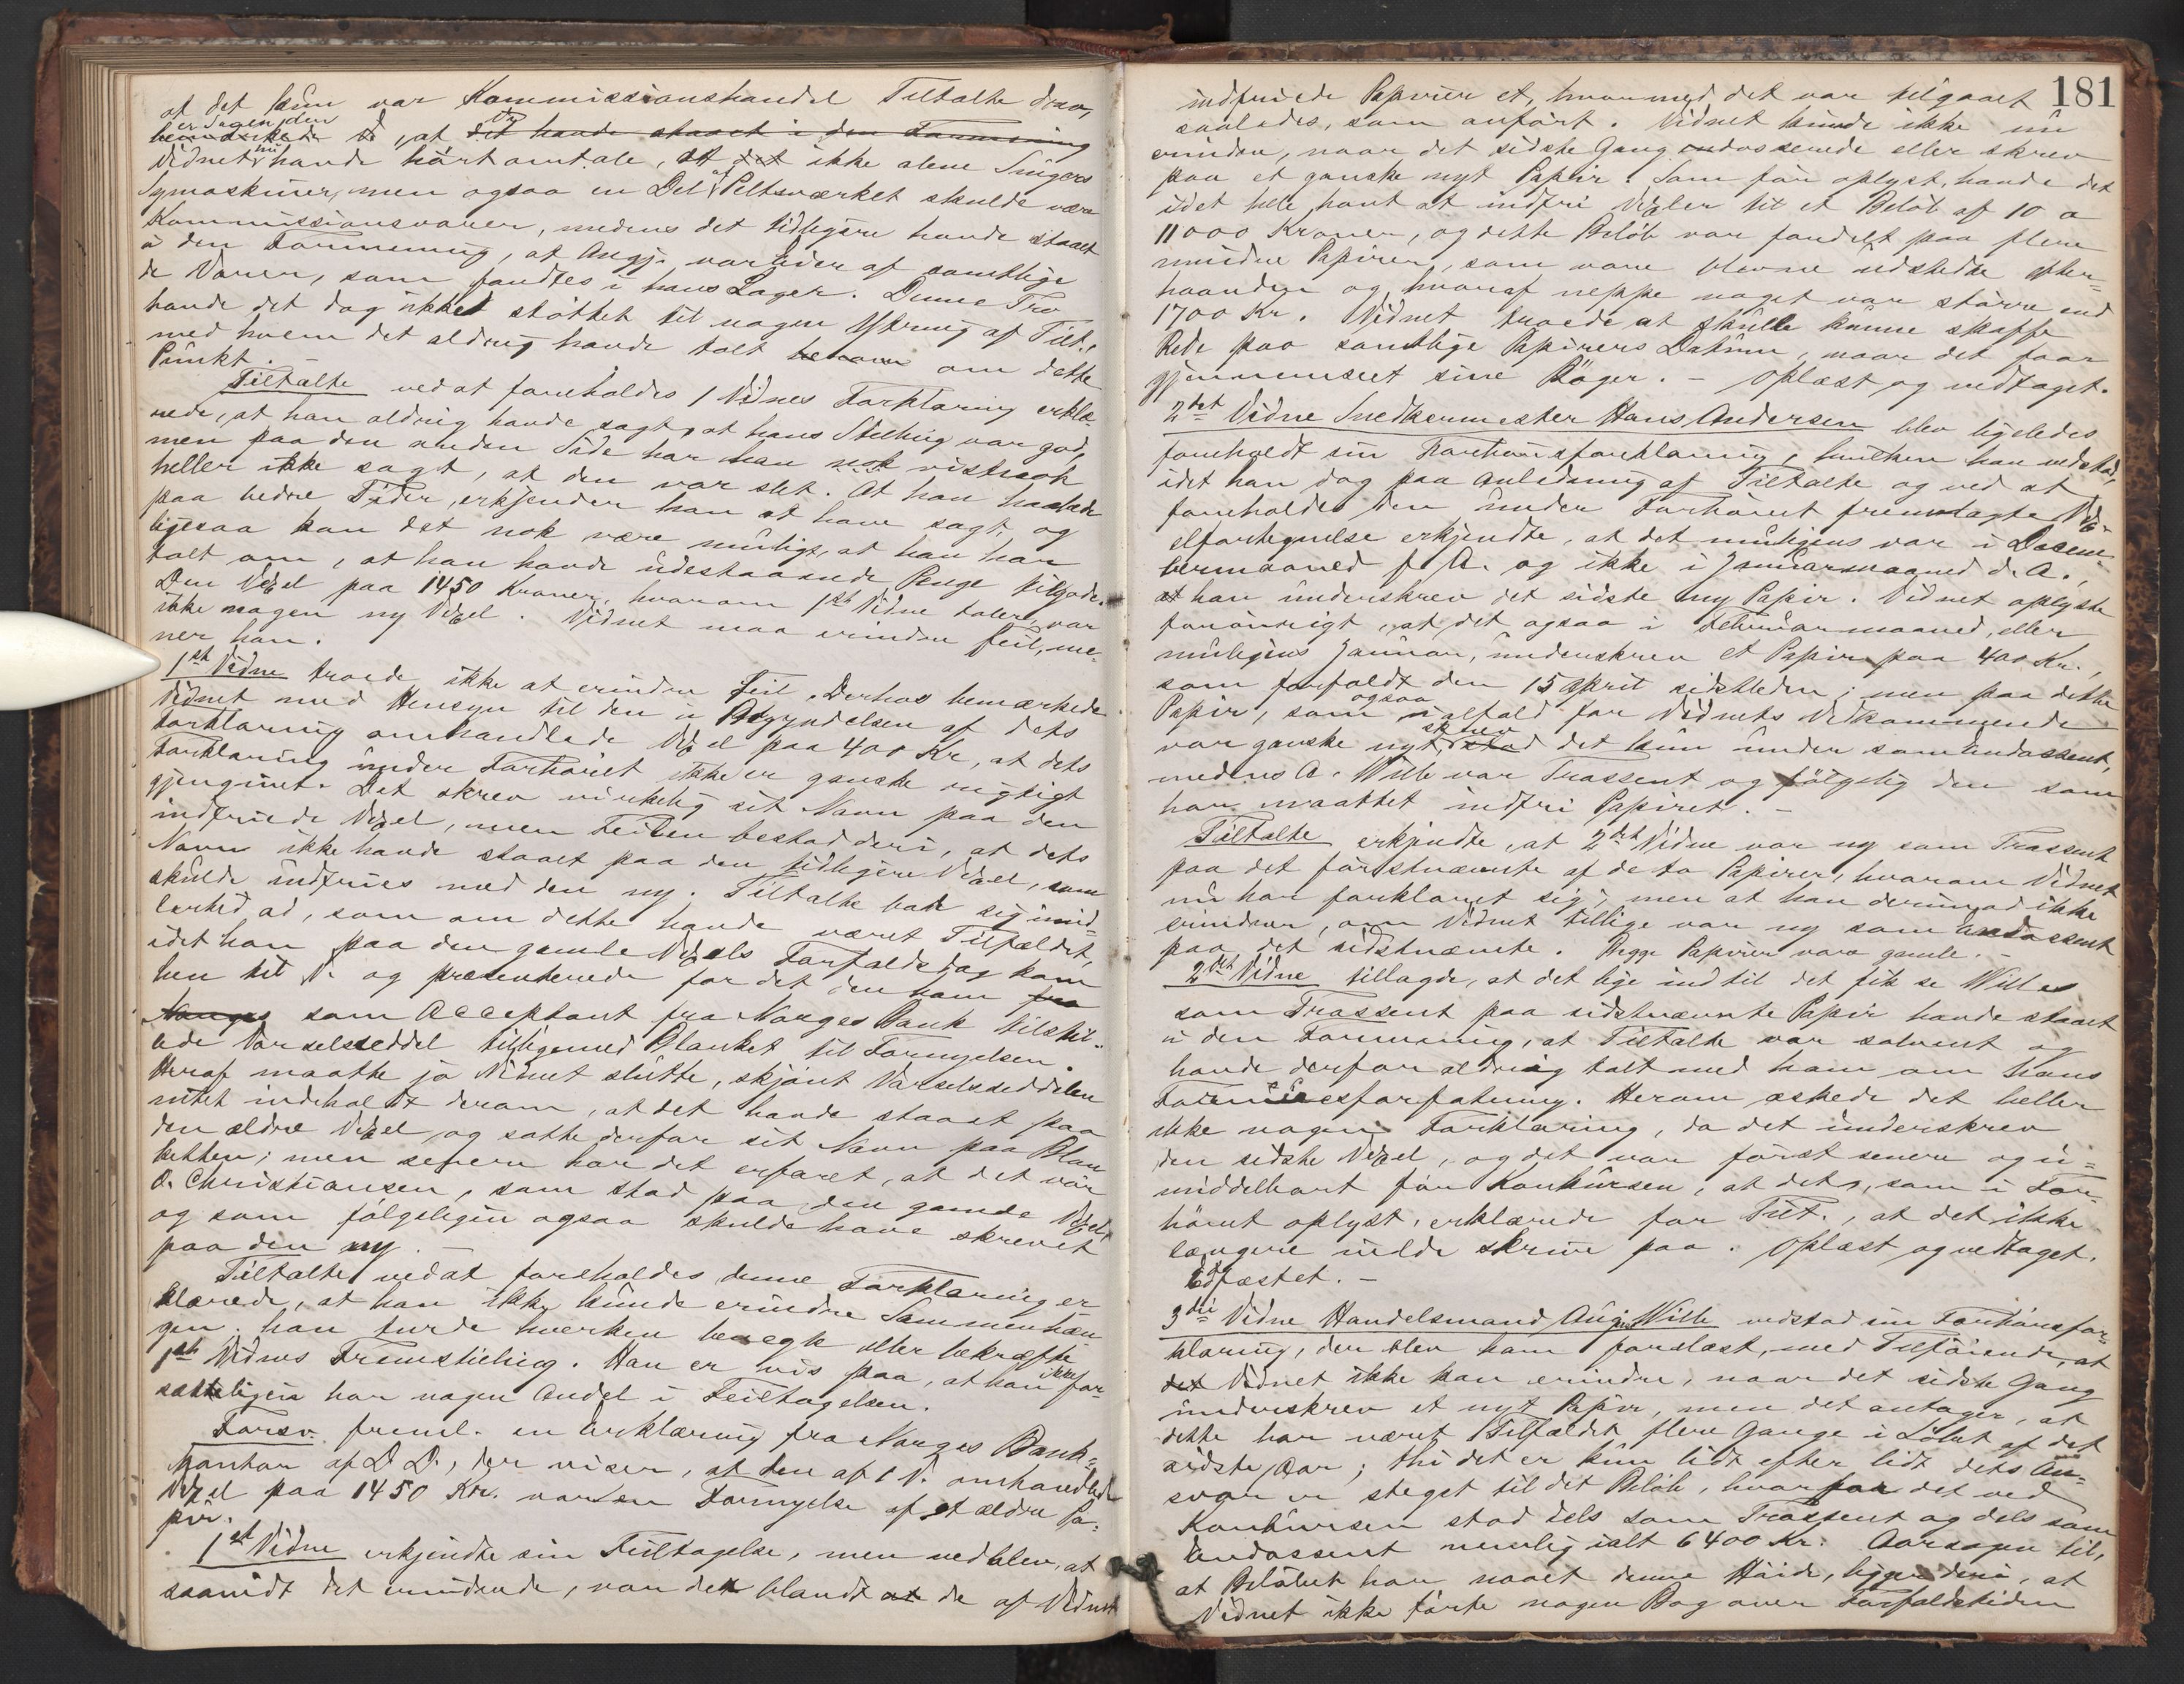 at det kun var Kommissionshandel Tiltalte drev,
er Sagen den
at det havde staaet i den Formening
Vidnet nu havde hørt omtale, at det ikke alene Singers
Symaskiner, men ogsaa en Del af Peltsværket skulde være
Kommissionsvarer, medens det tidligere havde staaet
i den Formening, at Angj. var Eier af samtlige
de Varer, som fandtes i hans Lager. Denne Tro
havde det dog ikke støttet til nogen Ytring af Tilt.,
med hvem det aldrig havde talt herom om dette
Punkt. –
Tiltalte ved at foreholdes 1 Vidnes Forklaring erklæ-
rede, at han aldrig havde sagt, at hans Stilling var god,
men paa den anden Side har han nok vistnok
heller ikke sagt, at den var slet. At han haabede
paa bedre Tider, erkjender han at have sagt, og
ligesaa kan det nok være muligt, at han har
talt om, at han havde udestaaende Penge tilgode.
Den Vexel paa 1450 Kroner, hvorom 1ste Vidne taler, var
ikke nogen ny Vexel. Vidnet maa erindre feil, me-
ner han.
1ste Vidne troede ikke at erindre feil. Derhos bemærkede
Vidnet med Hensyn til den i Begyndelsen af dets
Forklaring omhandlede Vexel paa 400 Kr, at dets
Forklaring under Forhøret ikke er ganske rigtigt
gjengivet. Det skrev virkelig sit Navn paa den
indfriede Vexel, men Feilen bestod deri, at dets
Navn ikke havde staaet paa den tidligere Vexel, som
skulde indfries med den ny. Tiltalte bar sig imid-
lertid ad, som om dette havde været Tilfældet,
idet han paa den gamle Vexels Forfaldsdag kom
hen til V. og præsenterede for det den ham fra
Norges som Acceptant fra Norges Bank tilstil-
lede Varselseddel tilligemed Blanket til Fornyelsen.
Heraf maatte jo Vidnet slutte, skjønt Varselseddelen
intet indeholdt derom, at det havde staaet paa
den ældre Vexel og satte derfor sit Navn paa Blan
ketten; men senere har det erfaret, at det var
O. Christiansen, som stod paa den gamle Vexel,
og som følgeligen ogsaa skulde have skrevet
paa den ny. –
Tiltalte ved at foreholdes denne Forklaring er
klærede, at han ikke kunde erindre Sammenhæn
gen; han turde hverken benegte eller bekræfte
1ste Vidnes Fremstilling. Han er vis paa, at han ikke for-
sætteligen har nogen Andel i Feiltagelsen.
Forsv. freml. en Erklæring fra Norges Bank-
kontor af D. D., der viser, at den af 1 V. omhandlede
Vexel paa 1450 Kr. var en Fornyelse af et ældre Pa-
pir.
1ste Vidne erkjendte sin Feiltagelse, men vedblev, at
saavidt det erindrede, var det blandt at de af Vidnet
181
indfriede Papirer et, hvormed det var tilgaaet
saaledes, som anført. Vidnet kunde ikke nu
erindre, naar det sidste Gang endosserede eller skrev
paa et ganske nyt Papir. Som før oplyst, havde det
idet hele havt at indfri Vexler til et Beløb af 10 a
11000 Kroner, og dette Beløb var fordelt paa flere
mindre Papirer, som vare blevne udstedte efter-
haanden og hvoraf neppe noget var større end
1700 Kr. Vidnet troede at skulle kunne skaffe
Rede paa samtlige Papirers Datum, naar det faar
gjennemseet sine Bøger. – Oplæst og vedtaget.
2det Vidne Snedkermester Hans Andersen blev ligeledes
foreholdt sin Forhørsforklaring, hvilken han vedstod,
idet han dog paa Anledning af Tiltalte og ved at
foreholdes den under Forhøret fremlagte Vex-
elfortegnelse erkjendte, at det muligens var i Decem-
bermaaned f. A. og ikke i Januarmaaned d. A.,
at han underskrev det sidste ny Papir. Vidnet oplyste
forøvrigt, at det ogsaa i Februarmaaned, eller
muligens Januar, underskrev et Papir paa 400 Kr.,
som forfaldt den 15 April sidstleden; men paa dette
Papir, som ogsaa ialfald for Vidnets Vedkommende
var ganske nyt, skrev det kun under som Endossent,
medens A. Wille var Trassent og følgelig den som
har maattet indfri Papiret. –
Tiltalte erkjendte, at 2det Vidne var ny som Trassent
paa det førstnævnte af de to Papirer, hvorom Vidnet
nu har forklaret sig; men at han derimod ikke
erindrer, om Vidnet tillige var ny som Endossent
paa det sidstnævnte. Begge Papirer vare gamle. –
2det Vidne tillagde, at det lige indtil det fik se Willes
som Trassent paa sidstnævnte Papir havde staaet
i den Formening, at Tiltalte var solvent og
havde derfor aldrig talt med ham om hans
Formuesforfatning. Herom æskede det heller
ikke nogen Forklaring, da det underskrev
den sidste Vexel, og det var først senere og u-
middelbart før Konkursen, at det, som i For-
høret oplyst, erklærede for Tilt., at det ikke
længere vilde skrive paa. Oplæst og vedtaget.
Edfæstet. –
3die Vidne Handelsmand Aug. Wille vedstod sin Forhørsfor-
klaring, der blev ham forelæst, med Tilføiende, at
det Vidnet ikke kan erindre, naar det sidste Gang
underskrev et nyt Papir, men det antager, at
dette har været Tilfældet flere Gange i Løbet af det
sidste Aar; thi det er kun lidt efter lidt dets An-
svar er steget til det Beløb, hvorfor det ved
Konkursen stod dels som Trassent og dels som
Endossent nemlig ialt 6400 Kr. Aarsagen til,
at Beløbet har naaet denne Høide, ligger deri, at
Vidnet ikke førte nogen Bog over Forfaldstiden